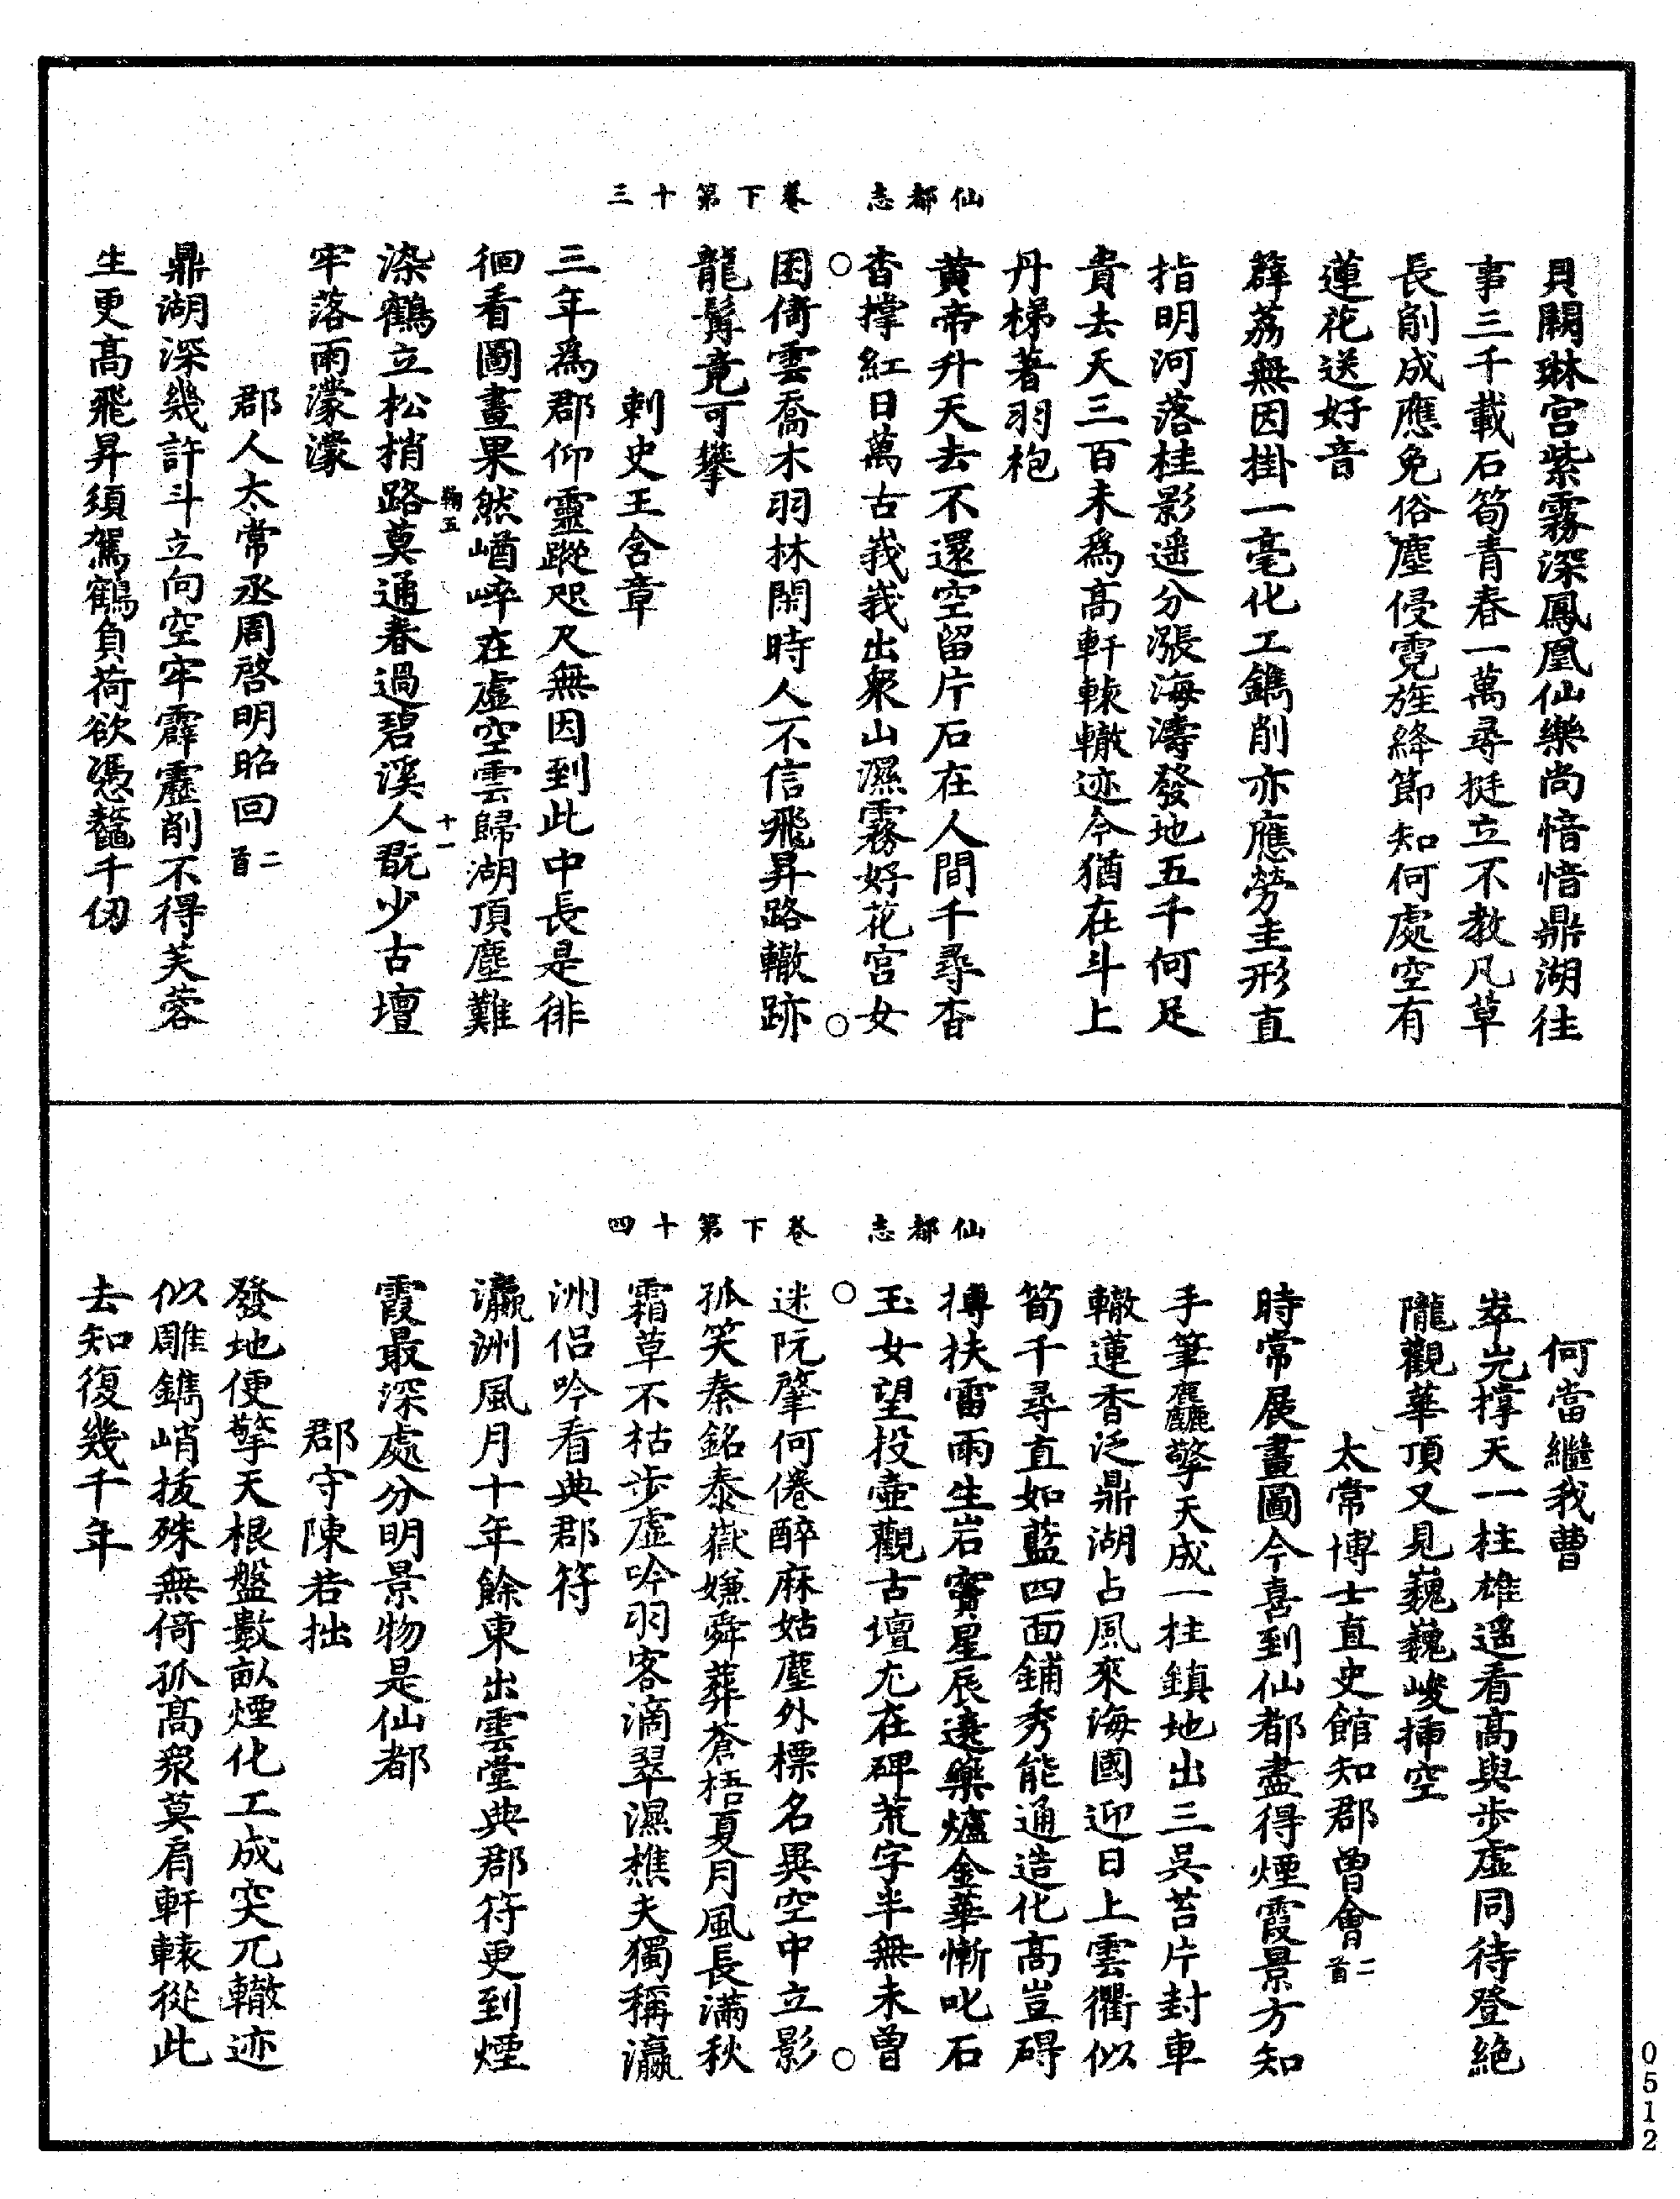 仙都志　卷下第十三
貝闕琳宮紫霧深鳳凰仙樂尚愔愔鼎湖往
事三千載石筍青春一萬尋挺立不教凡草
長削成應免俗塵侵霓旌絳節知何處空有
蓮花送好音
薜荔無因掛一毫化工鐫削亦應勞圭形直
指明河落桂影遥分漲海濤發地五千何足
貴去天三百未爲高軒轅轍迹今猶在斗上
丹梯著羽袍
黄帝升天去不還空留片石在人間千尋杳
杳撑紅日萬古峩峩出衆山濕霧好花宫女
困倚雲喬木羽林閑時人不信飛昇路轍跡
龍髯竟可攀
刺史王含章
三年爲郡仰靈蹤咫尺無因到此中長是徘
徊看圖畫果然崷崪在虛空雲歸湖頂塵難
染鶴立松梢路莫通春過碧溪人翫少古壇
牢落雨濛濛
鞠五
十一
郡人太常丞周啓明昭回二首
鼎湖深幾許斗立向空牢霹靂削不得芙蓉
生更高飛昇須駕鶴負荷欲憑鼇千仞
仙都志　卷下第十四
何當繼我曹
崒屼撑天一柱雄遥看高與步虛同待登絕
隴觀華頂又見巍巍峻揷空
太常博士直史館知郡曾會二首
時常展畫圖今喜到仙都盡得煙霞景方知
手筆麤擎天成一柱鎮地出三吳苔片封車
轍蓮香泛鼎湖占風來海國迎日上雲衢似
筍千尋直如藍四面鋪秀能通造化高豈碍
摶扶雷雨生岩竇星辰遶藥爐金華慚叱石
玉女望投壷觀古壇尢在碑荒字半無未曾
迷阮肇何倦醉麻姑塵外標名異空中立影
孤笑秦銘泰嶽嫌舜葬蒼梧夏月風長滿秋
霜草不枯步虛吟羽客滴翠濕樵夫獨稱瀛
洲侣吟看典郡符
瀛洲風月十年餘東出雲堂典郡符更到煙
霞最深處分明景物是仙都
郡守陳若拙
發地便擎天根盤數畝煙化工成突兀轍迹
似雕鐫峭拔殊無倚孤高衆莫肩軒轅從此
去知復幾千年
0512